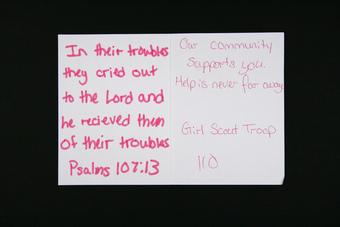 In their troubles
they cried out
to the Lord and
he recieved them
of their troubles
Psalms 107:13
Our community
supports you.
Help is never far away
Girl Scout Troop
110